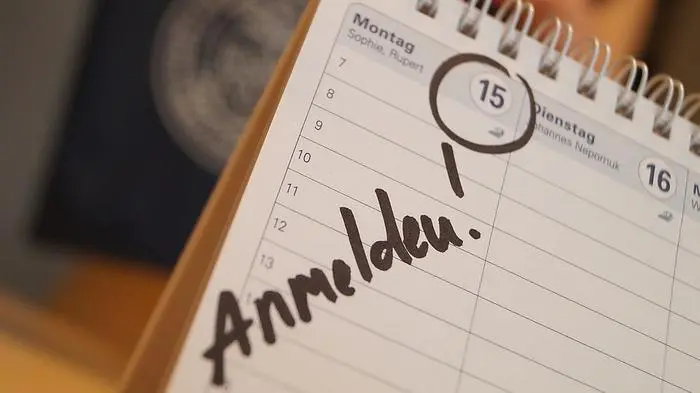 Montag
Sophie, Rupert
15
7
8
9
10
11
12
13
Dienstag
Johannes Nepomuk
16
Anmelden!